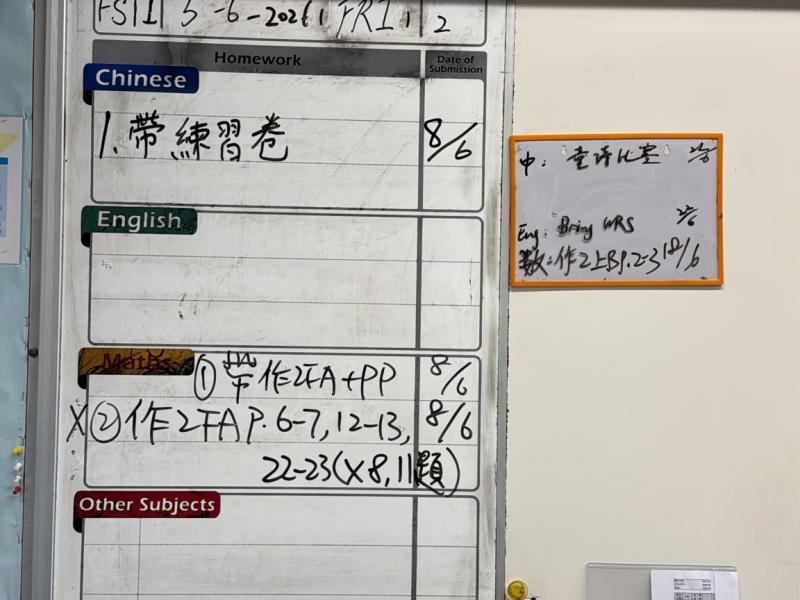 5-6-2026, FRI, 2
Homework
Date of Submission
Chinese
1. 帶練習卷 8/6
English
Maths
① 帶作2下A+PP 8/6
X② 作2下A P.6-7, 12-13, 8/6
22-23(X8,11題)
Other Subjects
中: 童詩比塞
Eng: Bring WRS
数: 作2上B P.2-3 18/6